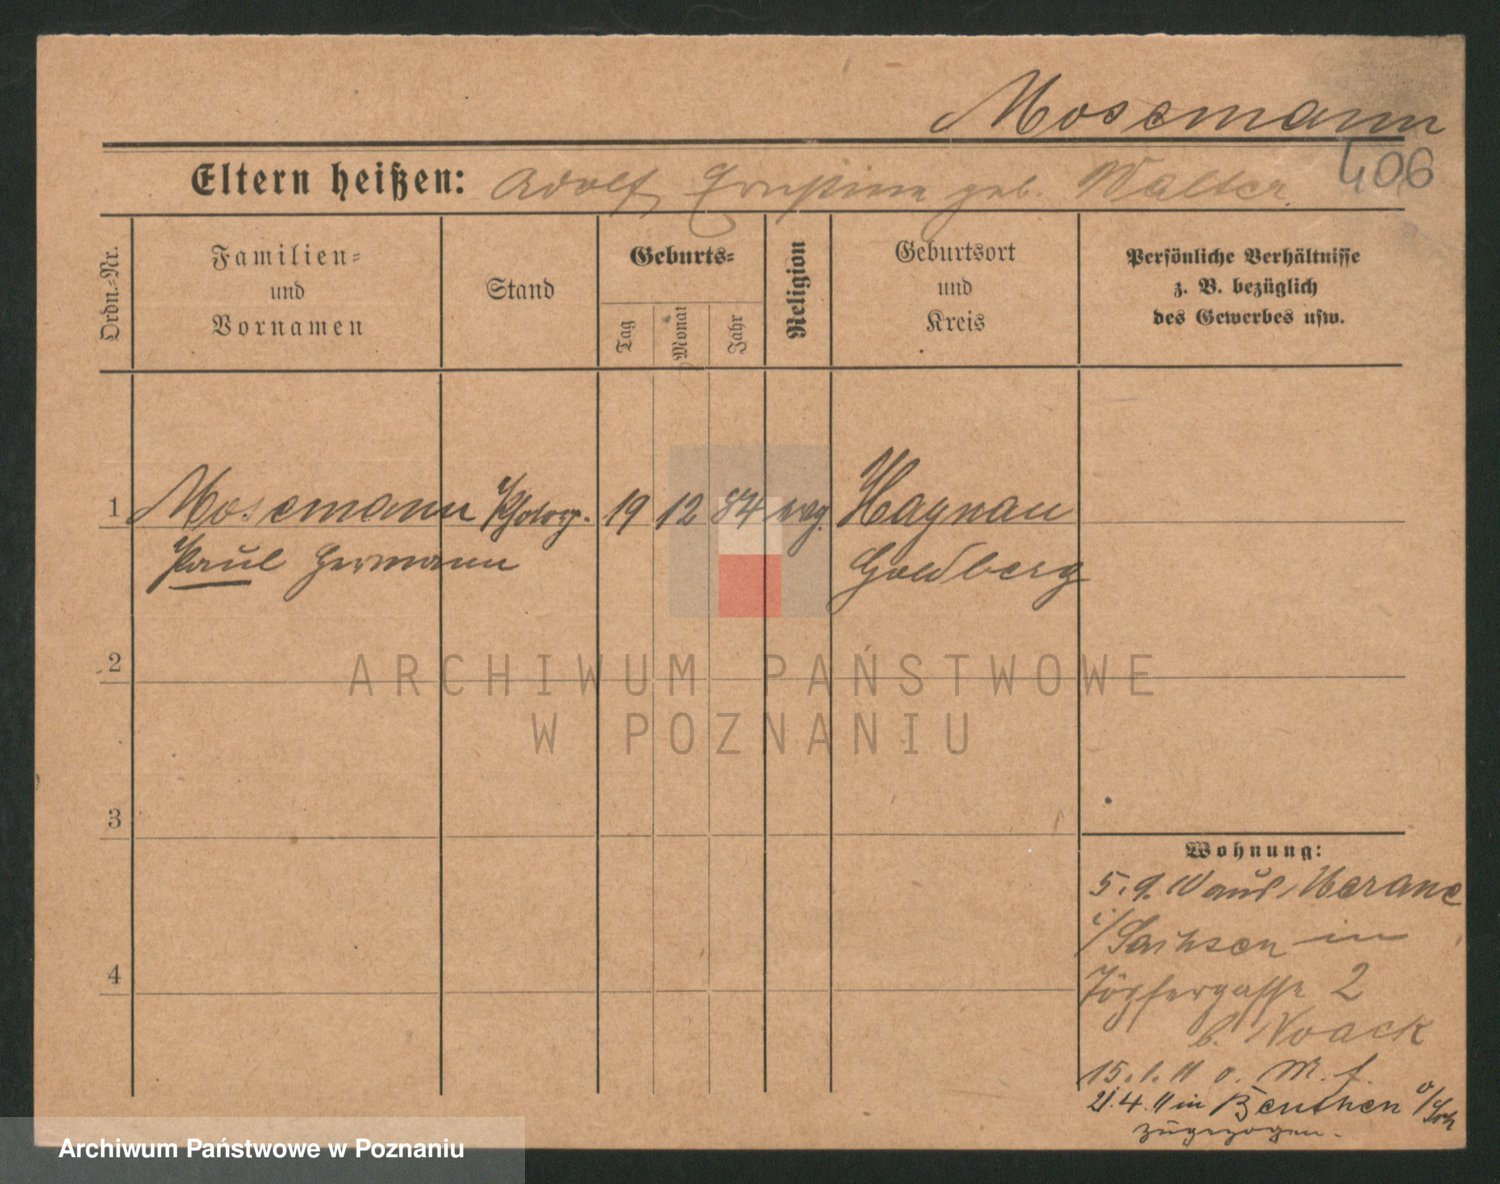 Mosemann
406
Eltern heißen: Adolf, Ernstine geb. Walter
Ordn.-Nr.
Familien-
und
Vornamen
Stand
Geburts-
Tag
Monat
Jahr
Religion
Geburtsort
und
Kreis
Persönliche Verhältnisse
z. B. bezüglich
des Gewerbes usw.
1 Mosemann Photogr. 19 12 84 evg. Haynau
Paul Hermann Goldberg
2
3
4
ARCHIWUM PAŃSTWOWE
W POZNANIU
Wohnung:
5. 9. 10 aus Merane
i/Sachsen in
Töpfergasse 2
b. Noack
15. 1. 11 o. M. f.
21. 4. 11 in Beuthen o/
zugezogen.
Archiwum Państwowe w Poznaniu